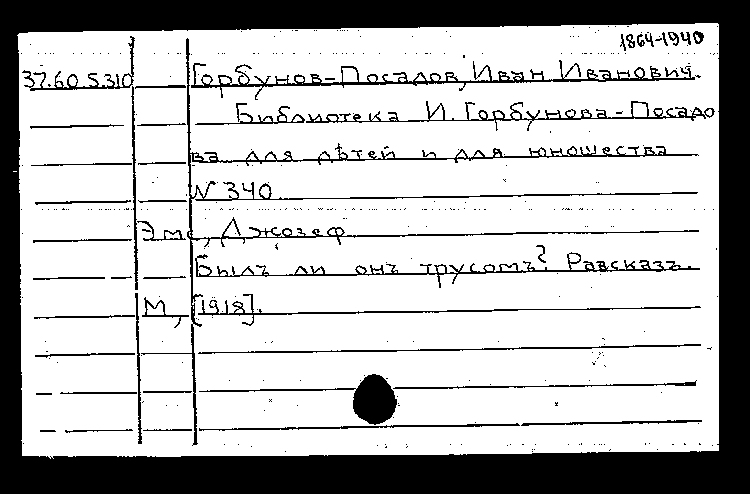 1864-1940
37.60 5.310 Горбунов-Посадов, Иван Иванович.
Библиотека И. Горбунова-Посадо
ва для дѣтей и для юношества
N 340
Эмс, Джозеф
Былъ ли онъ трусомъ? Разсказъ.
М, [1918].